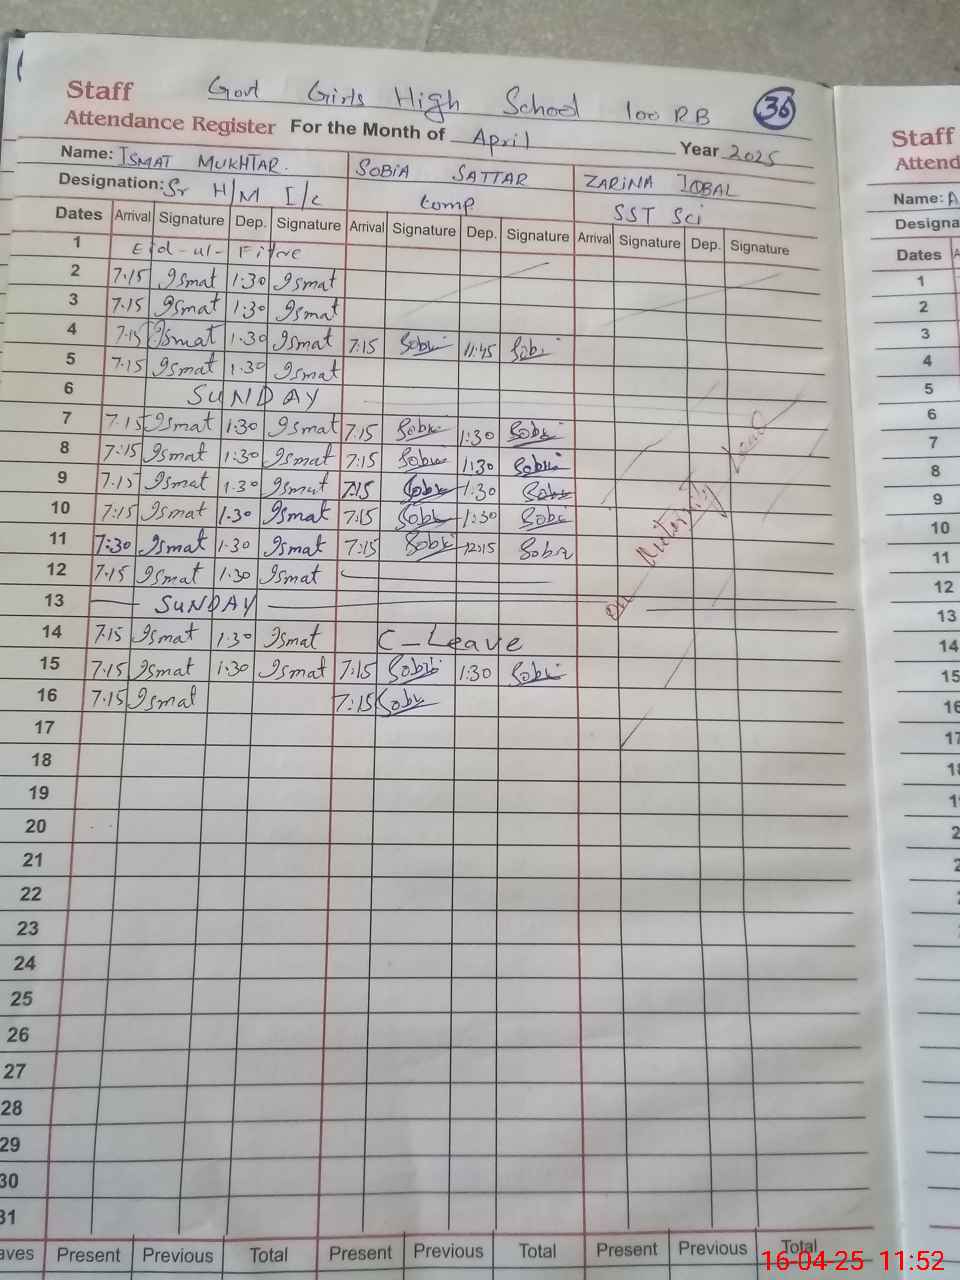 Staff Govt Girls High School 100 RB 36
Attendance Register For the Month of April Year 2025
Name: ISMAT MUKHTAR. SOBIA SATTAR ZARINA IQBAL
Designation: Sr H/M I/c Comp SST Sci
Dates Arrival Signature Dep. Signature Arrival Signature Dep. Signature Arrival Signature Dep. Signature
1 Eid-ul-Fitre
2 7.15 Ismat 1.30 Ismat
3 7.15 Ismat 1.30 Ismat
4 7.15 Ismat 1.30 Ismat 7:15 Sobi 11:45 Sobi
5 7.15 Ismat 1.30 Ismat
6 SUNDAY
7 7.15 Ismat 1:30 Ismat 7:15 Sobi 1:30 Sobi
8 7:15 Ismat 1:30 Ismat 7:15 Sobi 1:30 Sobi
9 7.15 Ismat 1.30 Ismat 7:15 Sobi 1:30 Sobi
10 7:15 Ismat 1.30 Ismat 7:15 Sobi 1:30 Sobi
11 7:30 Ismat 1.30 Ismat 7:15 Sobi 12:15 Sobi
12 7.15 Ismat 1.30 Ismat
13 SUNDAY
14 7.15 Ismat 1.30 Ismat C-Leave
15 7.15 Ismat 1.30 Ismat 7:15 Sobi 1:30 Sobi
16 7.15 Ismat 7:15 Sobi
17
18
19
20
21
22
23
24
25
26
27
28
29
30
31
on Maternity
aves Present Previous Total Present Previous Total Present Previous Total
Staff
Attend
Name: A
Designa
Dates A
1
2
3
4
5
6
7
8
9
10
11
12
13
14
15
16
17
16-04-25 11:52